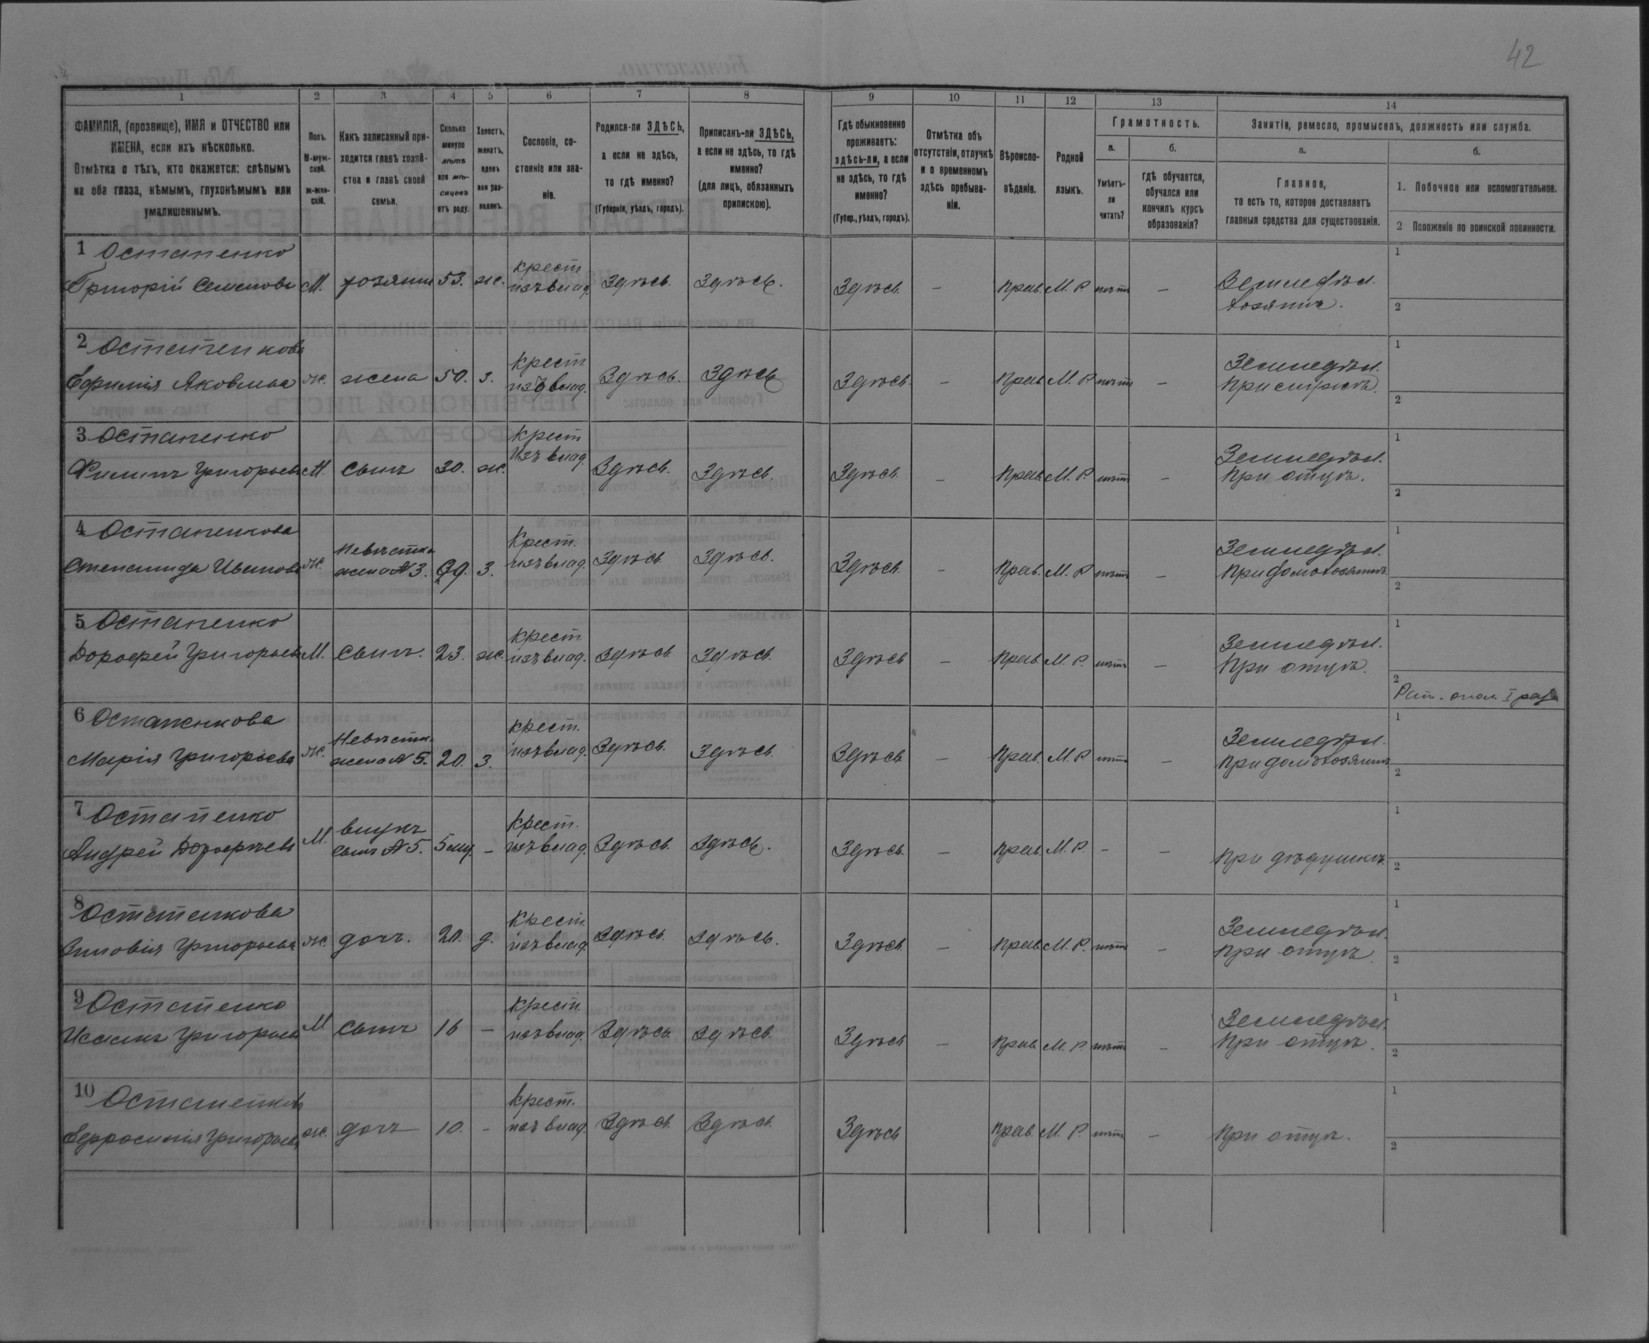 42
1 2 3 4 5 6 7 8 9 10 11 12 13 14
ФАМИЛІЯ, (прозвище), ИМЯ и ОТЧЕСТВО или
ИМЕНА, если ихъ нѣсколько.
Отмѣтка о тѣхъ, кто окажется: слѣпымъ
на оба глаза, нѣмымъ, глухонѣмымъ или
умалишеннымъ.
Полъ.
М-муж-
ской.
ж-жен-
скій.
Какъ записанный при-
ходится главѣ хозяй-
ства и главѣ своей
семьи.
Сколько
минуло
лѣтъ
или мѣ-
сяцевъ
отъ роду.
Холостъ,
женатъ,
вдовъ
или раз-
веденъ.
Сословіе, со-
стояніе или зва-
ніе.
Родился-ли ЗДѢСЬ,
а если не здѣсь,
то гдѣ именно?
(Губернія, уѣздъ, городъ).
Приписанъ-ли ЗДѢСЬ,
а если не здѣсь, то гдѣ
именно?
(для лицъ, обязанныхъ
припискою).
Гдѣ обыкновенно
проживаетъ:
здѣсь-ли, а если
не здѣсь, то гдѣ
именно?
(Губер., уѣздъ, городъ).
Отмѣтка объ
отсутствіи, отлучкѣ
и о временномъ
здѣсь пребыва-
ніи.
Вѣроиспо-
вѣданіе.
Родной
языкъ.
Грамотность.
а.
Умѣетъ-
ли
читать?
б.
гдѣ обучается,
обучался или
кончилъ курсъ
образованія?
Занятіе, ремесло, промыселъ, должность или служба.
а.
Главное,
то есть то, которое доставляетъ
главныя средства для существованія.
б.
1. Побочное или вспомогательное.
2 Положеніе по воинской повинности.
1 Остапенко
Григорій Семеновъ М. хозяинъ 53. ж. крест. изъ влад. Здѣсь. Здѣсь. Здѣсь. – Прав. М. Р. нѣтъ – Земледѣл. хозяинъ. 1 2
2 Остапенкова
Ефимія Яковлева ж. жена 50. з. Крест. изъ влад. Здѣсь. Здѣсь Здѣсь. – Прав. М. Р. нѣтъ – Земледѣл. 1 2
3 Остапенко
Филипъ Григорьевъ М. сынъ 30. ж. Крест. изъ влад. Здѣсь. Здѣсь. Здѣсь – Прав. М. Р. нѣтъ – Земледѣл. При отцѣ. 1 2
4 Остапенкова
Степанида Иванова ж. Невѣстка жена № 3. з. Крест. изъ влад. Здѣсь Здѣсь. Здѣсь – Прав. М. Р. нѣтъ – Земледѣл. При домохозяинѣ 1 2
5 Остапенко
Дорофей Григорьевъ М. сынъ. 23. ж. крест. изъ влад. Здѣсь Здѣсь. Здѣсь – Прав. М. Р. нѣтъ – Земледѣл. При отцѣ. 1 2 Рат. опол. I раз.
6 Остапенкова
Марія Григорьева ж. Невѣстка жена № 5. 20. з. крест. изъ влад. Здѣсь. Здѣсь Здѣсь – Прав. М. Р. нѣтъ – Земледѣл. При домохозяинѣ 1 2
7 Остапенко
Андрей Дорофеевъ М. внукъ сынъ № 5. 5 мц. – Крест. изъ влад. Здѣсь. Здѣсь. Здѣсь. – Прав. М. Р. – – При дѣдушкѣ. 1 2
8 Остапенкова
Григорьева ж. дочь. 20. д. Крест. изъ влад. Здѣсь. Здѣсь. Здѣсь – Прав. М. Р. нѣтъ – Земледѣл. При отцѣ. 1 2
9 Остапенко
Григорьевъ М сынъ 16 – Крест. изъ влад. Здѣсь Здѣсь. Здѣсь – Прав. М. Р. нѣтъ – Земледѣл. При отцѣ. 1 2
10 Остапенкова
Ефросинія Григорьева ж. дочь 10. – Крест. изъ влад. Здѣсь. Здѣсь. Здѣсь Прав. М. Р. нѣтъ – При отцѣ. 1 2